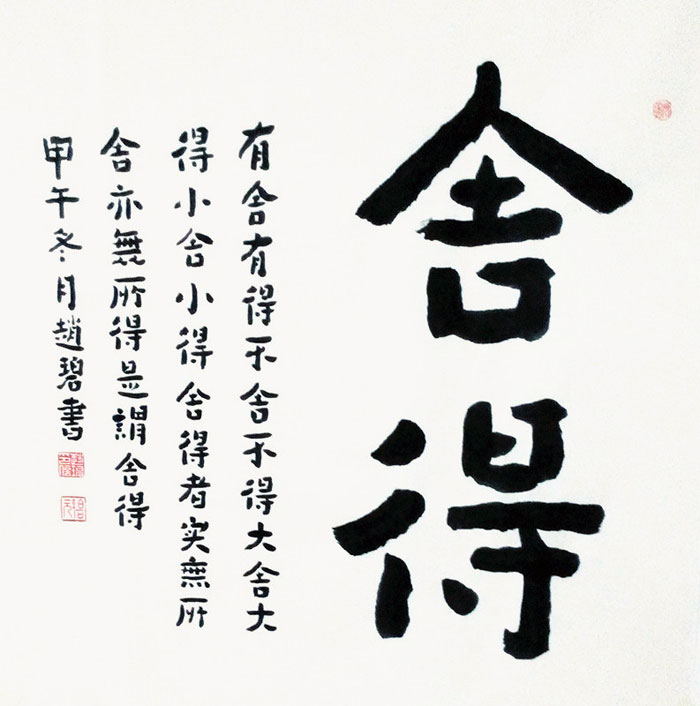 舍得
有舍有得不舍不得大舍大
得小舍小得舍得者实無所
舍亦無所得是謂舍得
甲午冬月趙碧書